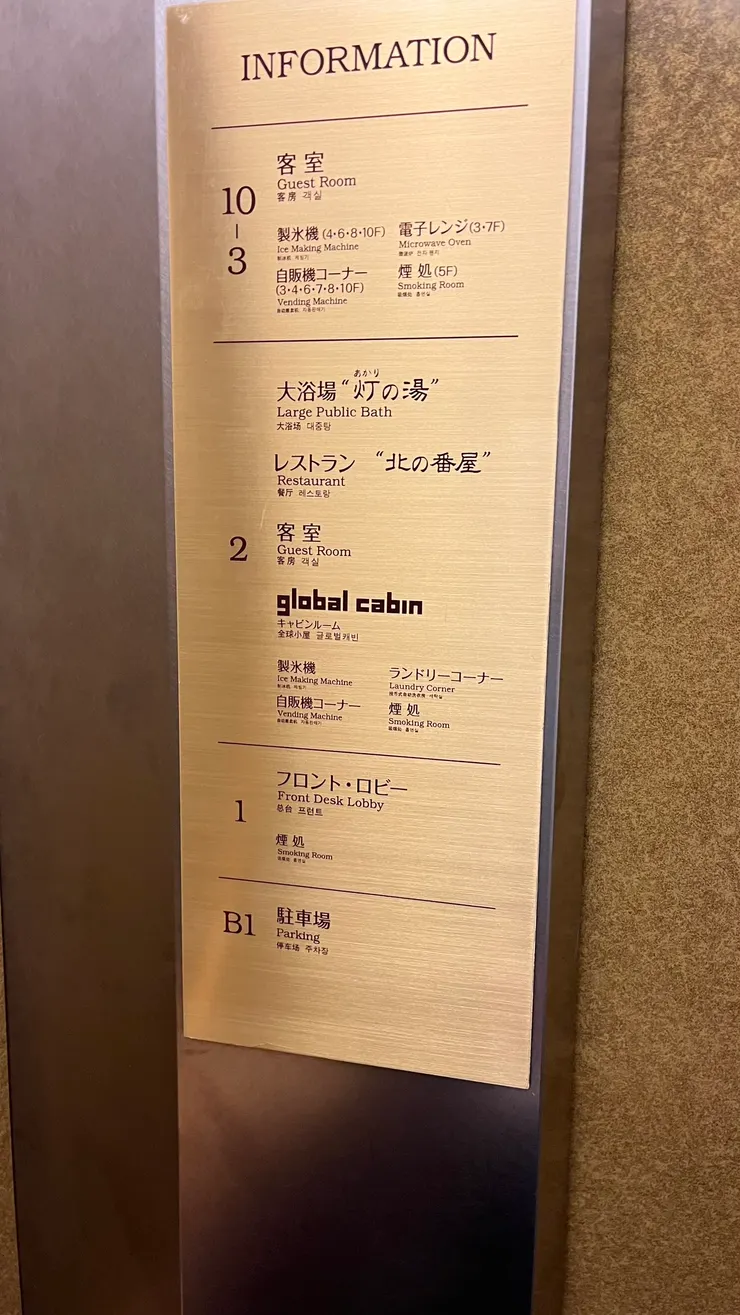 INFORMATION
10
-
3
客室
Guest Room
客房 객실
製氷機 (4・6・8・10F)
Ice Making Machine
制冰机 제빙기
電子レンジ(3・7F)
Microwave Oven
微波炉 전자 렌지
自販機コーナー
(3・4・6・7・8・10F)
Vending Machine
自动售卖机 자동판매기
煙処(5F)
Smoking Room
吸烟处 흡연실
2
あかり
大浴場“灯の湯”
Large Public Bath
大浴场 대중탕
レストラン “北の番屋”
Restaurant
餐厅 레스토랑
客室
Guest Room
客房 객실
global cabin
キャビンルーム
全球小屋 글로벌캐빈
製氷機
Ice Making Machine
制冰机 제빙기
ランドリーコーナー
Laundry Corner
自販機コーナー
Vending Machine
自动售卖机 자동판매기
煙処
Smoking Room
吸烟处 흡연실
1
フロント・ロビー
Front Desk Lobby
总台 프런트
煙処
Smoking Room
吸烟处 흡연실
B1
駐車場
Parking
停车场 주차장